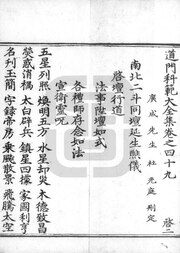 道門科範大全集卷之四十九　啓二
廣成先生杜光庭刪定
南北二斗同壇延生醮儀
啓壇行道
法事陞壇如式
各禮師存念如法
宣衛靈呪
五星列照　煥明五方　水星却災　木德致昌
熒惑消禍　太白辟兵　鎮星四據　家國利亨
名刋玉簡　字錄帝房　乗飈散景　飛騰太空